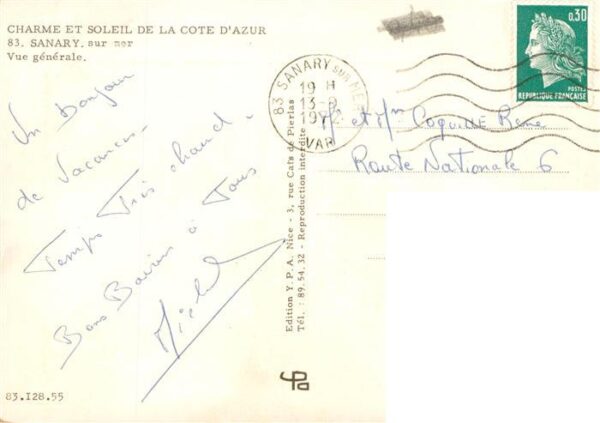 CHARME ET SOLEIL DE LA COTE D'AZUR
83. SANARY. sur mer
Vue générale.
Un Bonjour
de Vacances.
Temps Très chaud.
Bons Baisers à Tous
Michel
83.128.55
Edition Y.P.A. Nice - 3, rue Cafs de Pierlas
Tél. : 89.54.32 - Reproduction interdite
83 SANARY SUR MER
19 H
13-8
VAR
0,30
POSTES
REPUBLIQUE FRANÇAISE
et Mm Coquille René
Route Nationale 6